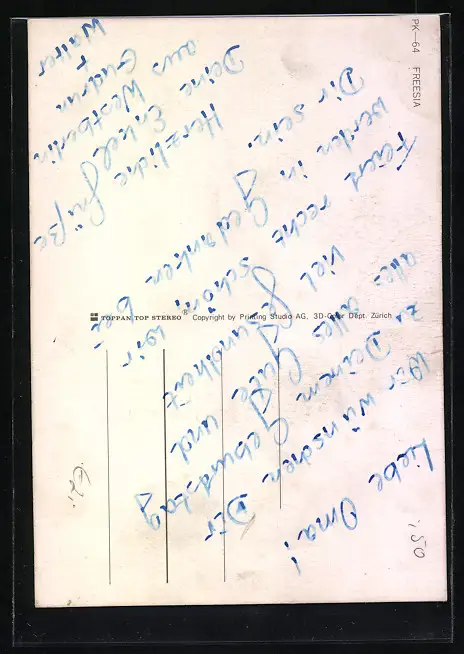 PK—64 FREESIA
Liebe Oma!
Wir wünschen Dir
zu Deinem Geburtstag
alles alles Gute und
viel Gesundheit
Feiert recht schön, wir
werden in Gedanken bei
Dir sein.
Herzliche Grüße
Deine Enkel
aus Westberlin
Gudrun
+
Walter
TOPPAN TOP STEREO® Copyright by Printing Studio AG, 3D-Color Dept. Zürich